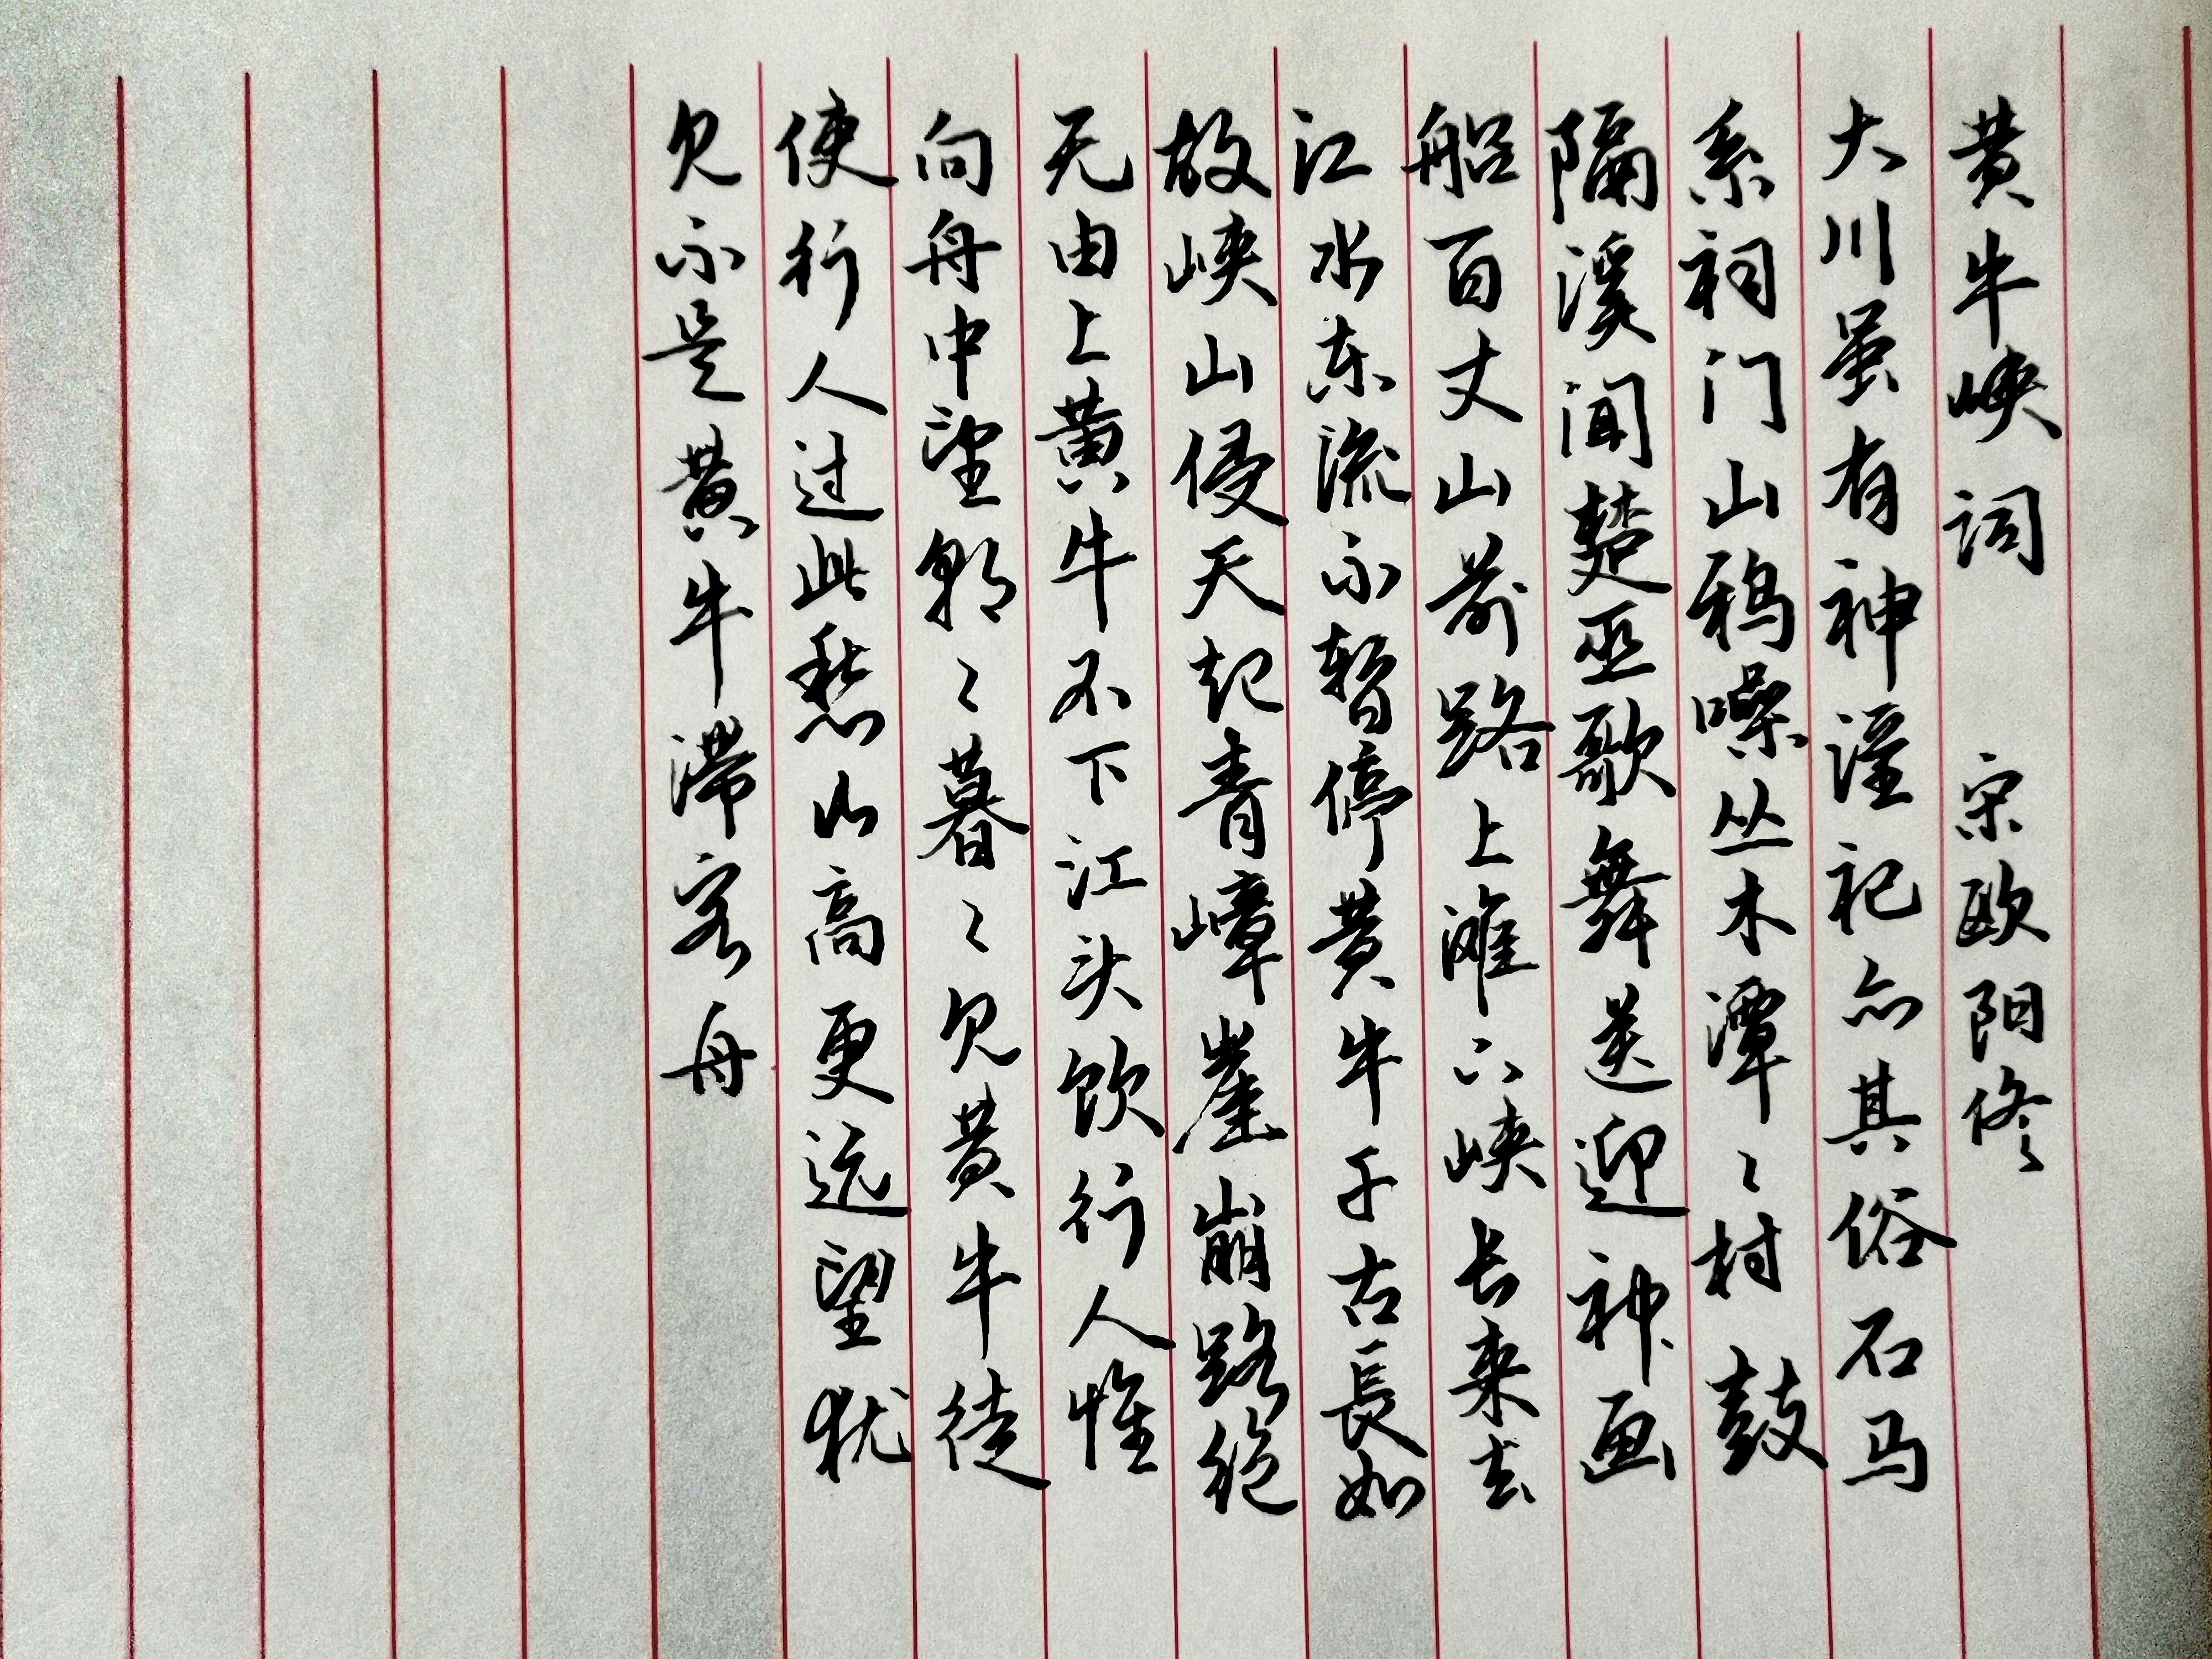 黄牛峡词 宋欧阳修
大川虽有神淫祀亦其俗石马
系祠门山鸦噪丛木潭々村鼓
隔溪闻楚巫歌舞送迎神画
船百丈山前路上滩下峡长来去
江水东流不暂停黄牛千古長如
故峡山侵天起青嶂崖崩路绝
无由上黄牛不下江头饮行人惟
向舟中望朝々暮々见黄牛徒
使行人过此愁山高更远望犹
见不是黄牛滞客舟